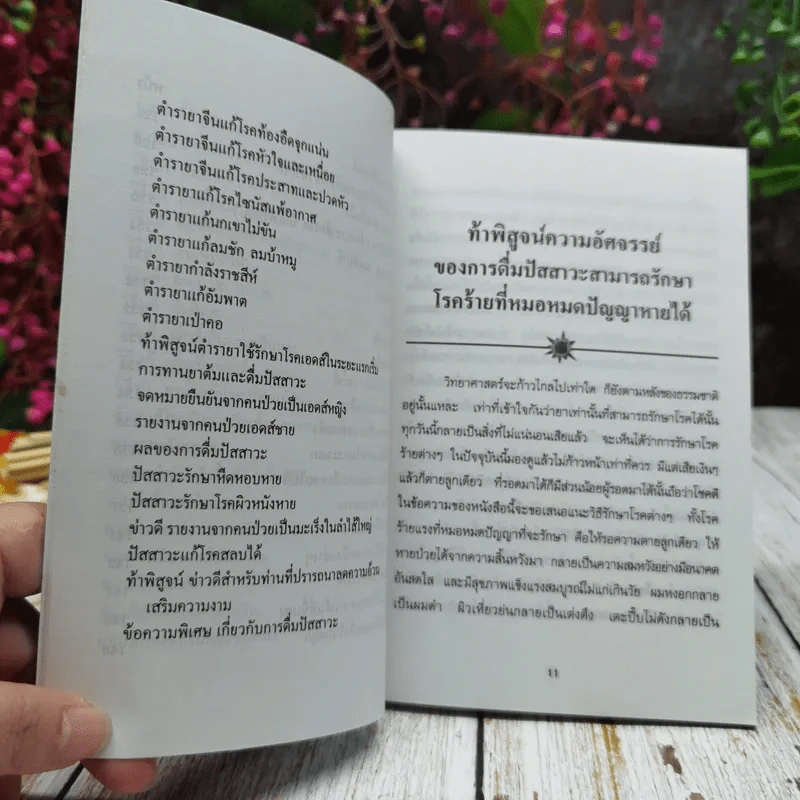 ตำรายาจีนแก้โรคท้องอืดจุกแน่น
ตำรายาจีนแก้โรคหัวใจและเหนื่อย
ตำรายาจีนแก้โรคประสาทและปวดหัว
ตำรายาแก้โรคไซนัสแพ้อากาศ
ตำรายาแก้นกเขาไม่ขัน
ตำรายาแก้ลมชัก ลมบ้าหมู
ตำรายากำลังราชสีห์
ตำรายาแก้อัมพาต
ตำรายาเป่าคอ
ท้าพิสูจน์ตำรายาใช้รักษาโรคเอดส์ในระยะแรกเริ่ม
การทานยาต้มและดื่มปัสสาวะ
จดหมายยืนยันจากคนป่วยเป็นเอดส์หญิง
รายงานจากคนป่วยเอดส์ชาย
ผลของการดื่มปัสสาวะ
ปัสสาวะรักษาหืดหอบหาย
ปัสสาวะรักษาโรคผิวหนังหาย
ข่าวดี รายงานจากคนป่วยเป็นมะเร็งในลำไส้ใหญ่
ปัสสาวะแก้โรคสลบได้
ท้าพิสูจน์ ข่าวดีสำหรับท่านที่ปรารถนาลดความอ้วน
เสริมความงาม
ข้อความพิเศษ เกี่ยวกับการดื่มปัสสาวะ
ท้าพิสูจน์ความอัศจรรย์
ของการดื่มปัสสาวะสามารถรักษา
โรคร้ายที่หมอหมดปัญญาหายได้
วิทยาศาสตร์จะก้าวไกลไปเท่าใด ก็ยังตามหลังของธรรมชาติ
อยู่นั้นแหละ เท่าที่เข้าใจกันว่ายาเท่านั้นที่สามารถรักษาโรคได้นั้น
ทุกวันนี้กลายเป็นสิ่งที่ไม่แน่นอนเสียแล้ว จะเห็นได้ว่าการรักษาโรค
ร้ายต่างๆ ในปัจจุบันนี้มองดูแล้วไม่ก้าวหน้าเท่าที่ควร มีแต่เสียเงินๆ
แล้วก็ตายลูกเดียว ที่รอดมาได้ก็มีส่วนน้อยผู้รอดมาได้นั้นถือว่าโชคดี
ในข้อความของหนังสือนี้จะขอเสนอแนะวิธีรักษาโรคต่างๆ ทั้งโรค
ร้ายแรงที่หมอหมดปัญญาที่จะรักษา คือให้รอความตายลูกเดียว ให้
หายป่วยได้จากความสิ้นหวังมา กลายเป็นความสมหวังอย่างมีอนาคต
อันสดใส และมีสุขภาพแข็งแรงสมบูรณ์ไม่แก่เกินวัย ผมหงอกกลาย
เป็นผมดำ ผิวเหี่ยวย่นกลายเป็นเต่งตึง เตะปี๊บไม่ดังกลายเป็น
11